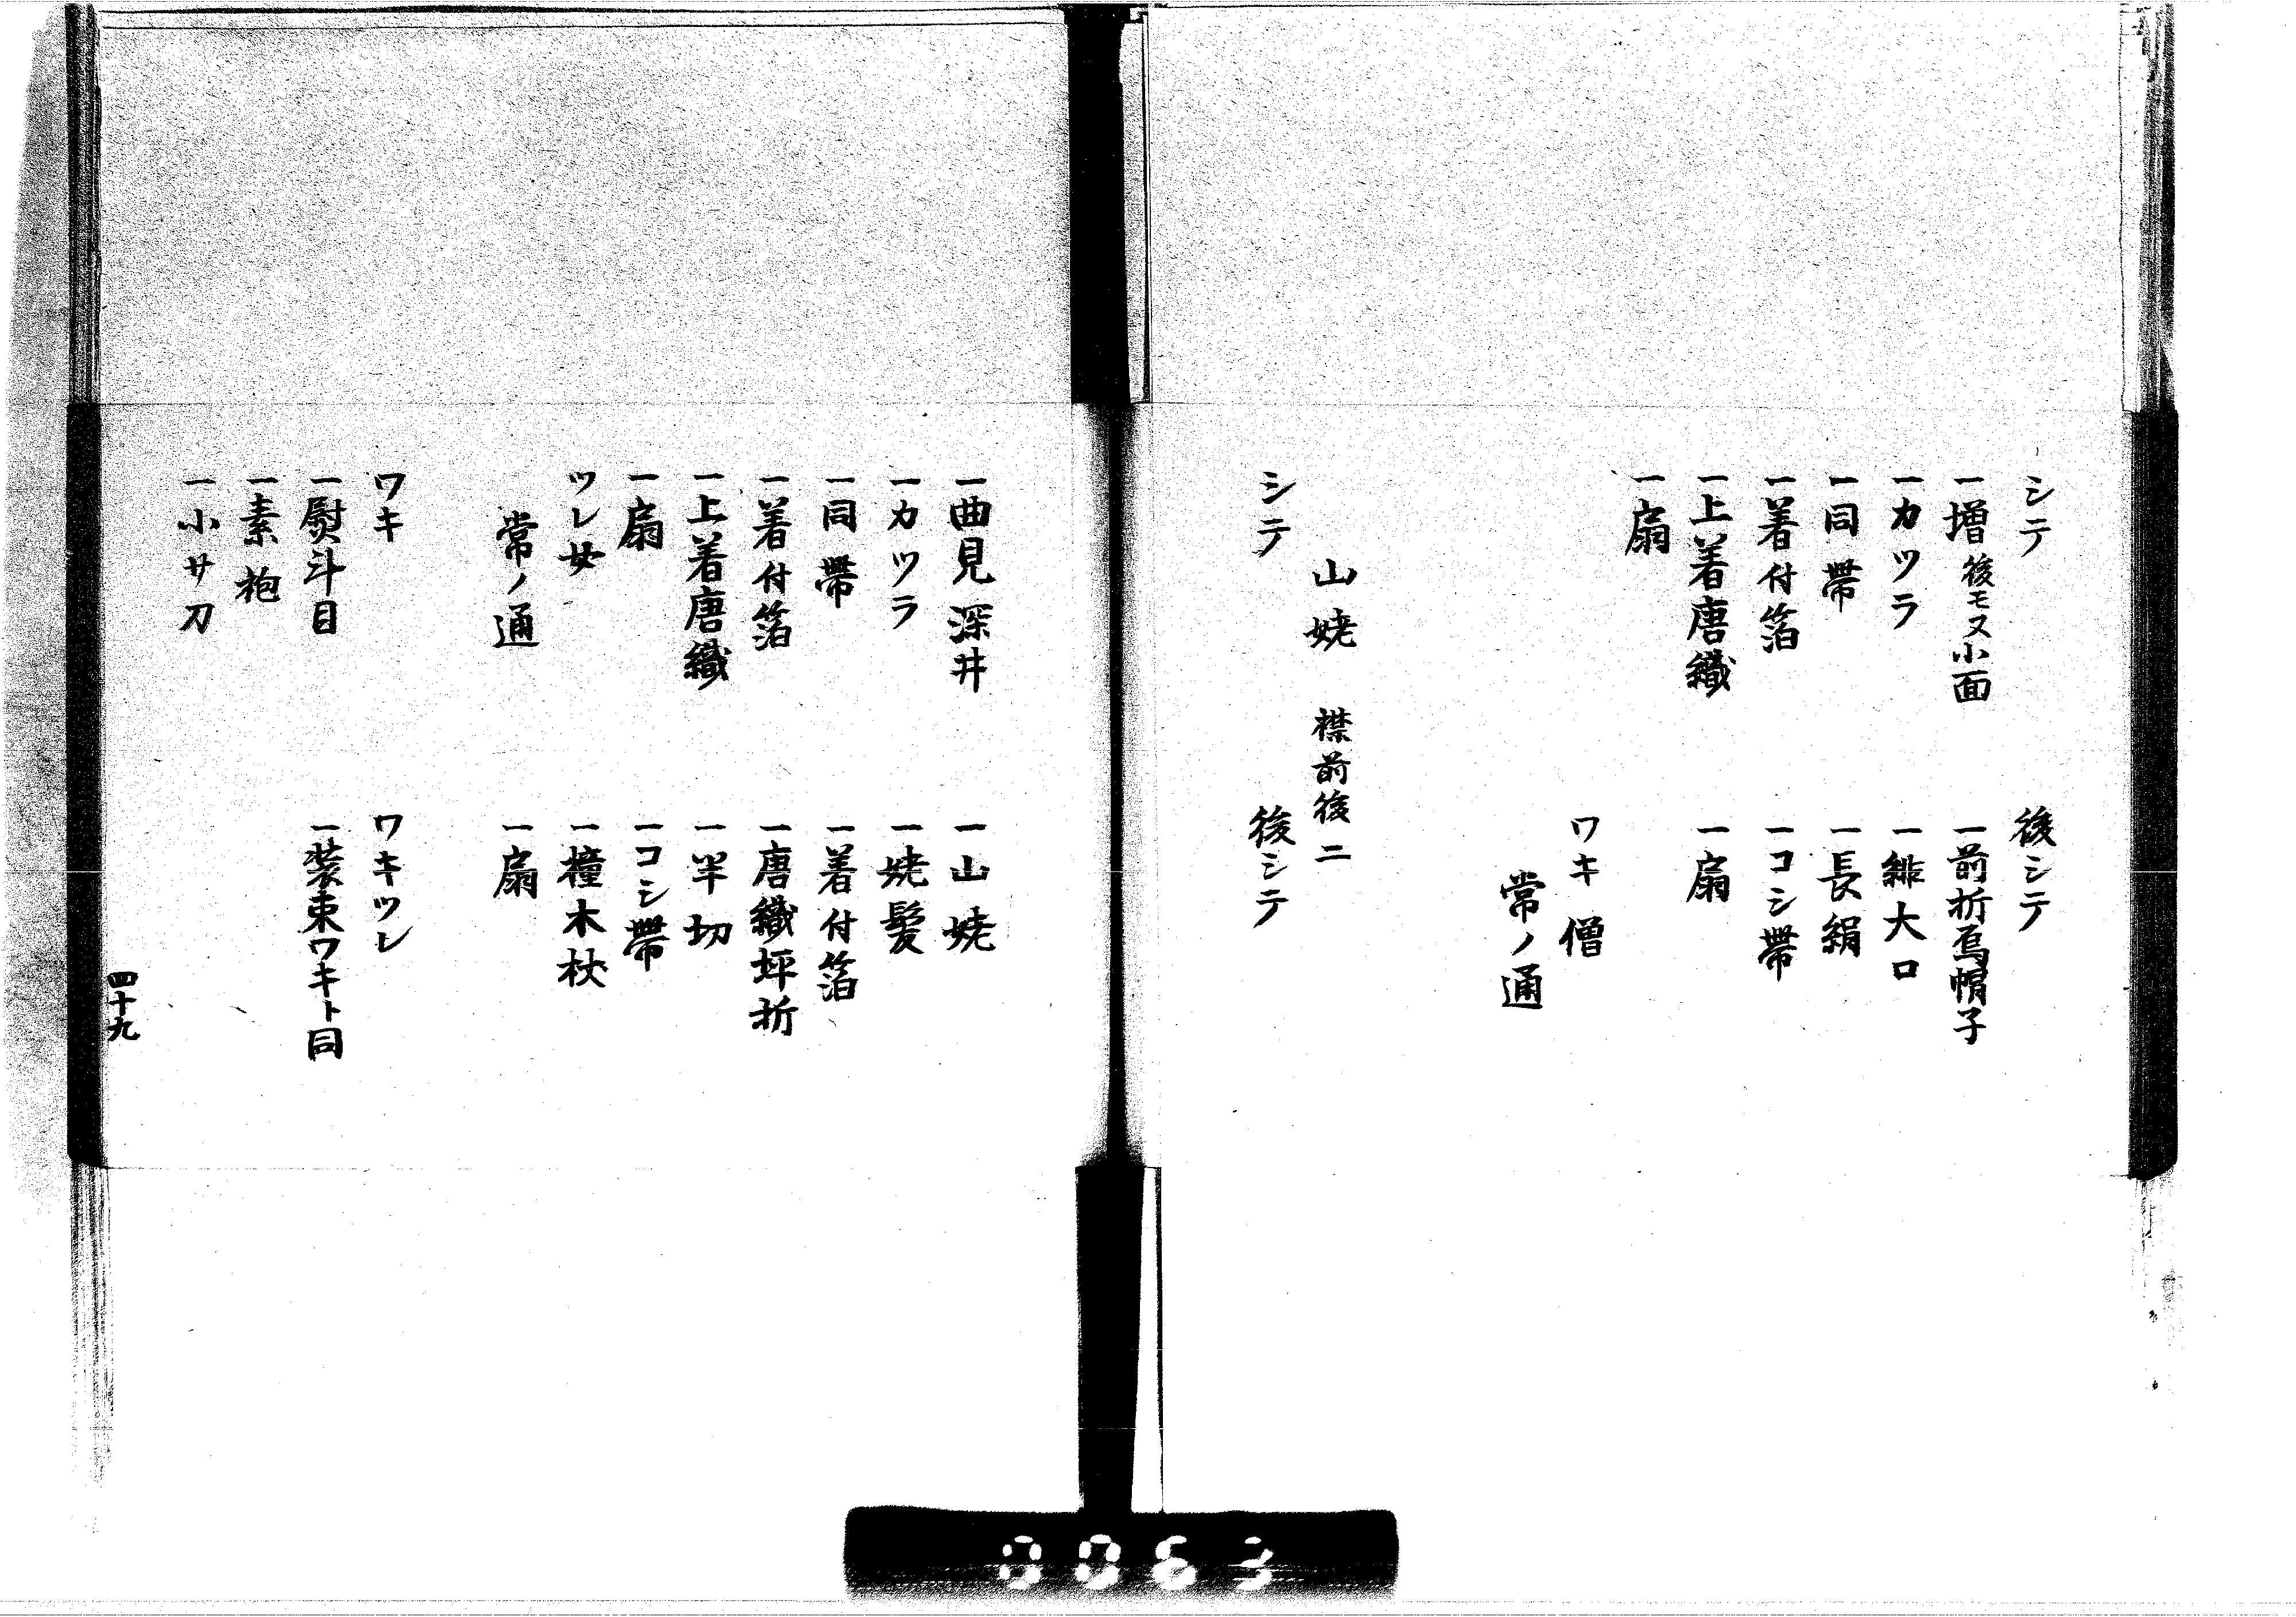 シテ
一増 後モ又小面
一カツラ
一同帯
一着付箔
一上着唐織
一扇
後シテ
一前折烏帽子
一緋大口
一長絹
一コシ帯
一扇
ワキ僧
常ノ通
山姥 襟前後二
シテ
後シテ
一曲見 深井
一カツラ
一同帯
一着付箔
一上着唐織
一扇
ツレ女
常ノ通
一山姥
一姥髪
一着付箔
一唐織坪折
一半切
一コシ帯
一橦木杖
一扇
ワキ
一熨斗目
一素袍
一小サ刀
ワキツレ
一装束ワキト同
四十九
0063